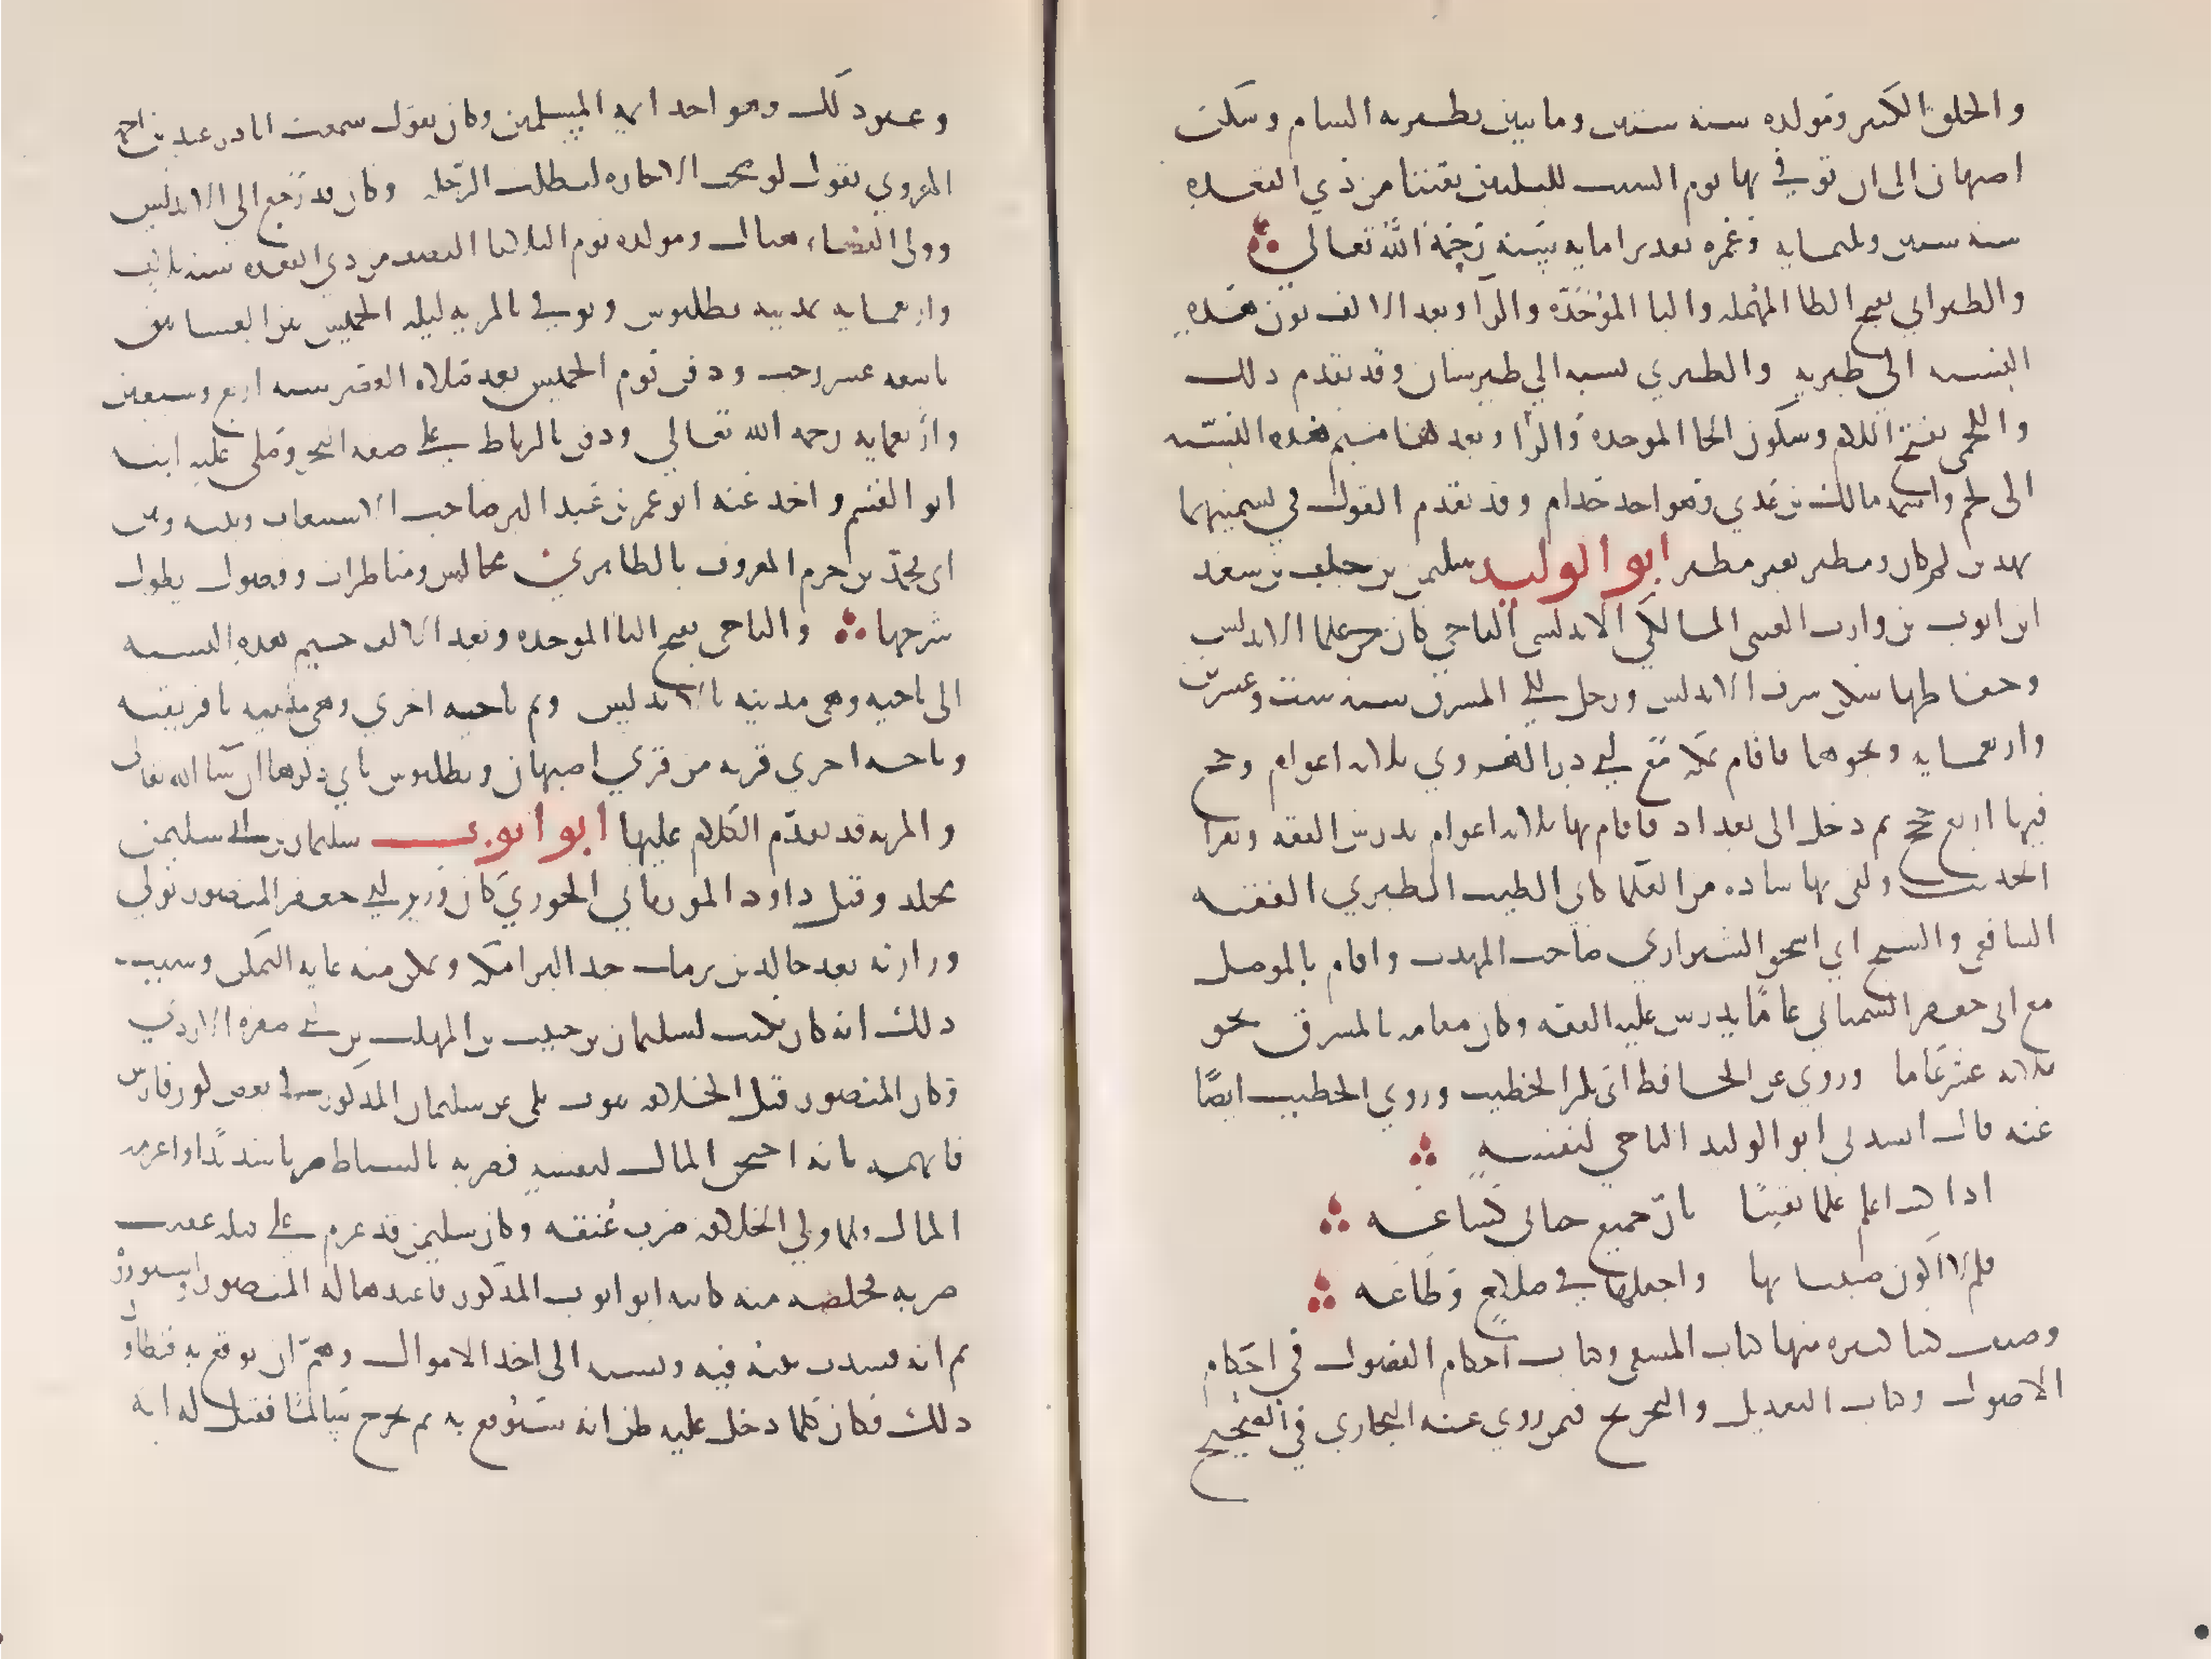 والخلق الكثير ومولده سنه ستين وماىتين بطبريه الشام وسكن
اصبهان الى ان توفي بها يوم السبت لليلتين بقيتا من ذي القعده
سنه ستين وثلثمايه وعمره تقديرا مايه سنه رحمه الله تعالى
والطبراني بفتح الطا المهمله والبا الموحده والرا وبعد الالف نون هذه
النسبه الى طبريه والطبري نسبه الي طبرستان وقد تقدم ذلك
واللخمي بفتح اللام وسكون الخا الموحده والرا وبعدها ميم هذه النسبه
الى لخم واسمه مالك بن عدي وهو اخو جذام وقد تقدم القول في تسميتهما
بهذين الاسمين ومطير تصغير مطر ابو الوليد سليمن بن خلف بن سعد
ابن ايوب بن وارث التجيبي المالكي الاندلسي الباجي كان من علما الاندلس
وحفاظها سكن شرق الاندلس ورحل الى المشرق سنه ست وعشرين
واربعمايه ونحوها فاقام بمكه مع ابي ذر الهروي ثلاثه اعوام وحج
فيها اربع حجج ثم دخل الى بغداد فاقام بها ثلاثه اعوام يدرس الفقه ويقرا
الحديث ولقي بها ساده من العلما كابي الطيب الطبري الفقيه
الشافعي والشيخ ابي اسحق الشيرازي صاحب المهذب واقام بالموصل
مع ابي جعفر السمناني عاما يدرس عليه الفقه وكان مقامه بالمشرق نحو
ثلاثه عشر عاما وروي عن الحافظ ابي بكر الخطيب وروي الخطيب ايضا
عنه قال انشدني ابو الوليد الباجي لنفسه
اذا كنت اعلم علما يقينا بان جميع حياتي كساعه
فلم لا اكون ضنينا بها واجعلها في صلاح وطاعه
وصنف كتبا كثيره منها كتاب المنتقي وكتاب احكام الفصول في احكام
الاصول وكتاب التعديل والتجريح فيمن روي عنه البخاري في الصحيح
وغير ذلك وهو احد ايمه المسلمين وكان يقول سمعت ابا ذر عبد بن احمد
الهروي يقول لو صحت الاجازه لبطلت الرحله وكان قد رجع الى الاندلس
وولي القضا هناك ومولده يوم الثلاثا النصف من ذي القعده سنه ثلاث
واربعمايه بمدينه بطليوس وتوفي بالمريه ليله الخميس بين العشاين
تاسعه عشر رجب ودفن يوم الخميس بعد صلاه العصر سنه اربع وسبعين
واربعمايه رحمه الله تعالي ودفن بالرباط على ضفه البحر وصلى عليه ابنه
ابو القسم واخذ عنه ابو عمر بن عبد البر صاحب الاستيعاب وبينه وبين
ابي محمد بن حزم المعروف بالظاهري مجالس ومناظرات وفصول يطول
شرحها والباجي بفتح البا الموحده وبعد الالف جيم هذه النسبه
الى باجه وهي مدينه بالاندلس وثم باجه اخري وهي مدينه بافريقيه
وباجه اخري قريه من قري اصبهان وبطليوس ياتي ذكرها ان شا الله تعالى
والمريه قد تقدم الكلام عليها ابو ايوب سليمان بن ابي سليمن
مخلد وقيل داود المورياني الخوزي كان وزير ابي جعفر المنصور تولي
وزارته بعد خالد بن برمك جد البرامكه وتمكن منه غايه التمكن وسبب
ذلك انه كان يكتب لسليمان بن حبيب بن المهلب بن ابي صفره الازدي
وكان المنصور قبل الخلافه ينوب على عن سليمان المذكور في بعض كور فارس
فاتهمه بانه احتجن المال لنفسه فضربه بالسياط ضربا شديدا واغرمه
المال ولما ولي الخلافه ضرب عنقه وكان سليمن قد عزم على قتله عقيب
ضربه فخلصه منه كاتبه ابو ايوب المذكور فاعتدها له المنصور واستوزره
ثم انه فسدت نيته فيه ونسبه الى اخذ الاموال وهم ان يوقع به فتطاول
ذلك فكان كلما دخل عليه ظن انه سيوقع به ثم يخرج سالما فقيل له انه